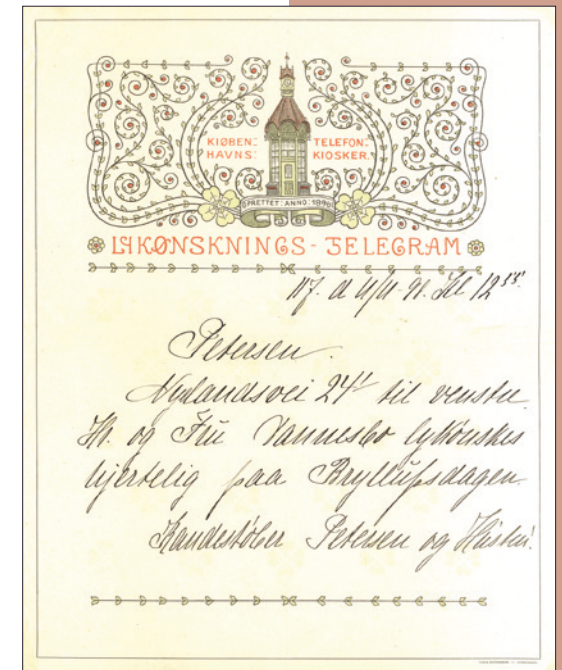 KIØBEN:
HAVNS:
TELEFON:
KIOSKER.
OPRETTET: ANNO: 1896
LYKØNSKNINGS-TELEGRAM
d 4/11-98. Kl 12 55.
Petersen.
Nylandsvei 24 til venstre
Hr. og Fru Vannesbo lykønskes
hjertelig paa Bryllupsdagen.
Kandestøber Petersen og Hustru.